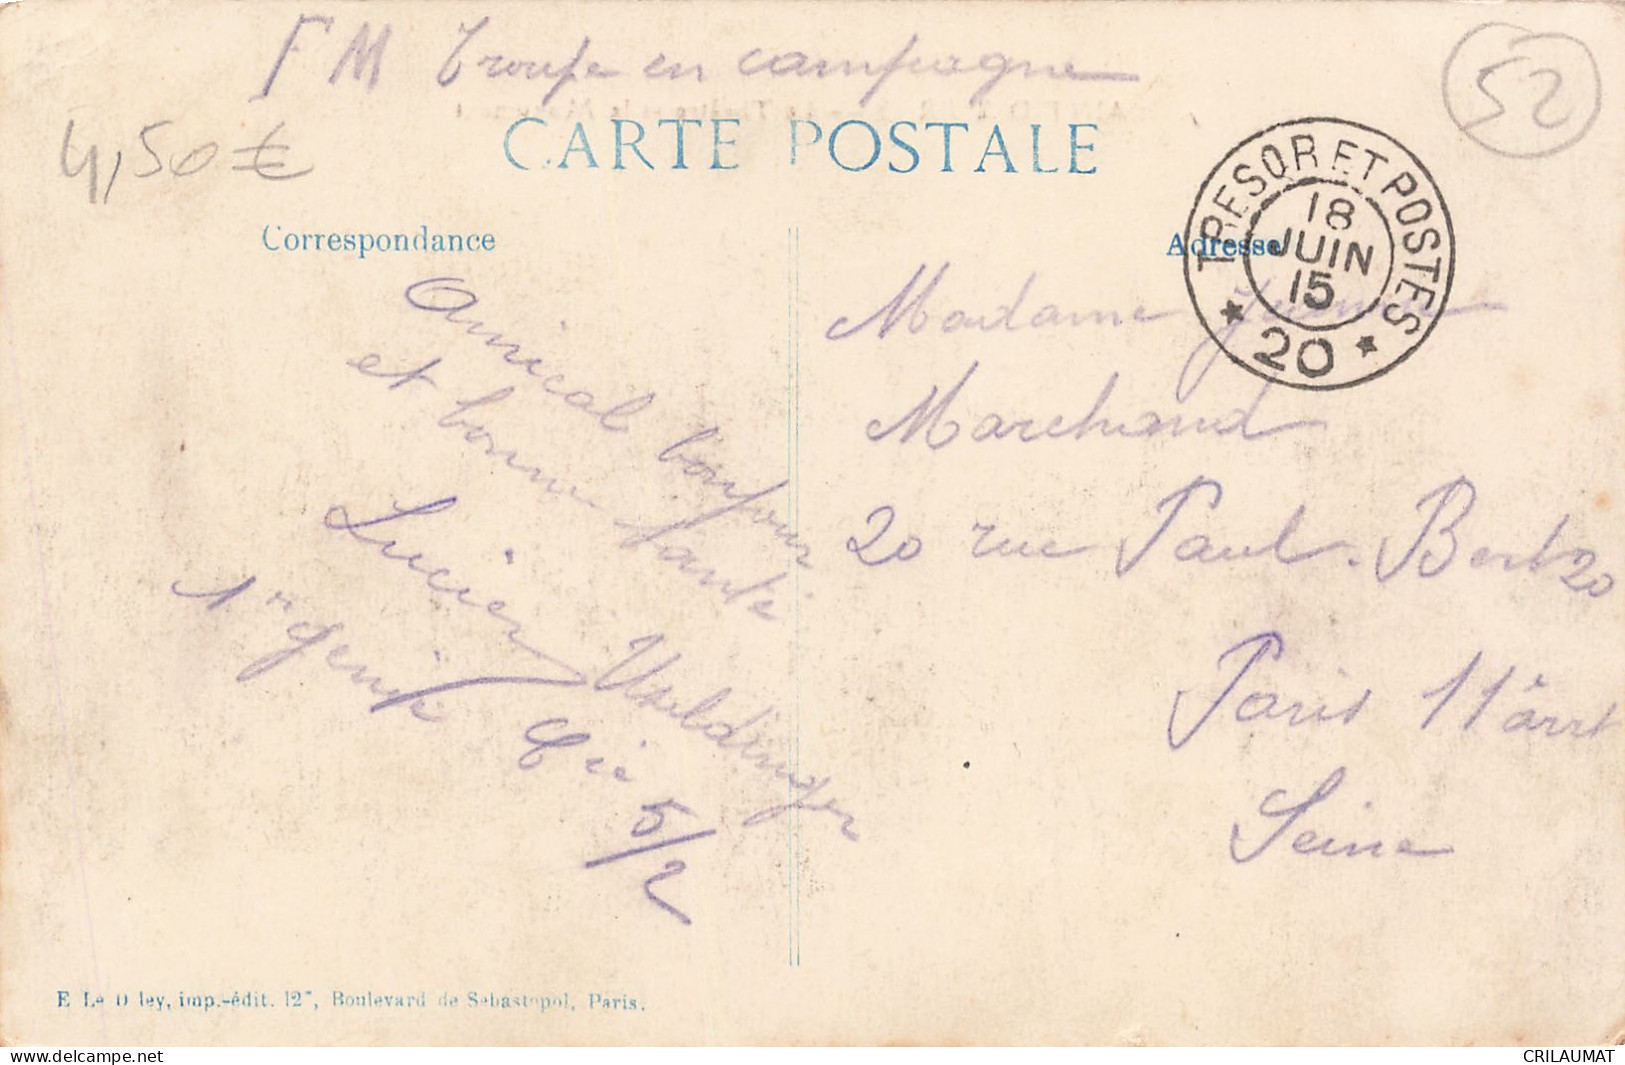 FM Troupe en campagne
52
4,50 €
CARTE POSTALE
TRESOR ET POSTES
18
JUIN
15
* 20 *
Correspondance
Adresse
Amical bonjour
et bonne santé
Lucien
1er génie Cie 5/2
Madame
Marchand
20 rue Paul. Bert 20
Paris 11e arrt
Seine
E Le Deley, imp.-édit. 127, Boulevard de Sébastopol, Paris.
delcampe.net
CRILAUMAT